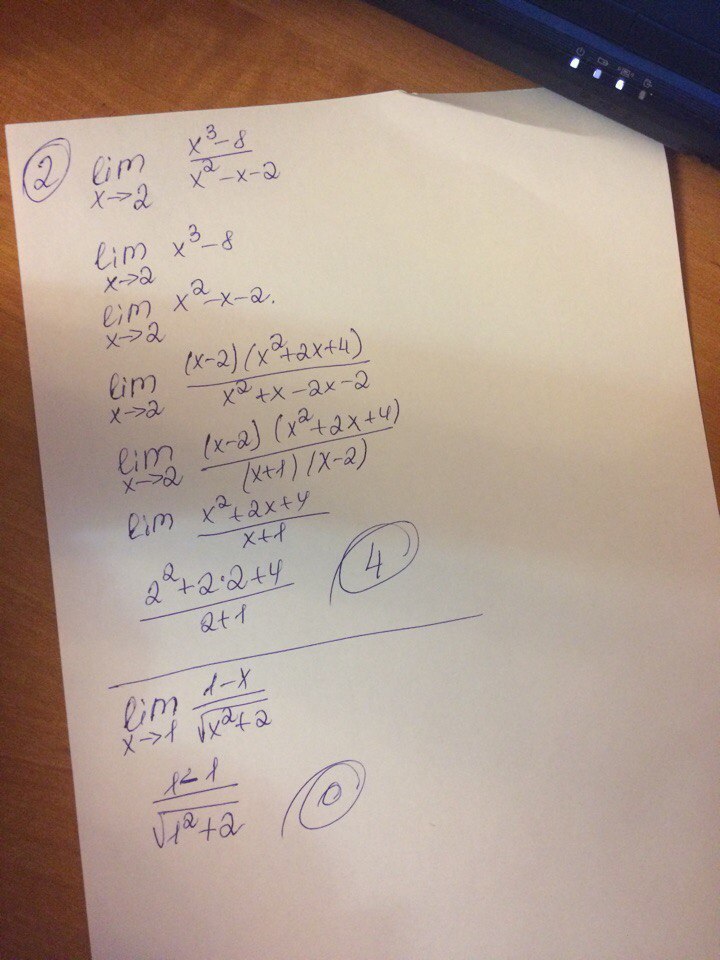 2 lim x→2 (x³-8)/(x²-x-2)
lim x→2 x³-8
lim x→2 x²-x-2.
lim x→2 ((x-2)(x²+2x+4))/(x²+x-2x-2)
lim x→2 ((x-2)(x²+2x+4))/((x+1)(x-2))
lim (x²+2x+4)/(x+1)
(2²+2·2+4)/(2+1) 4
lim x→1 (1-x)/√(x²+2)
(1-1)/√(1²+2) 0